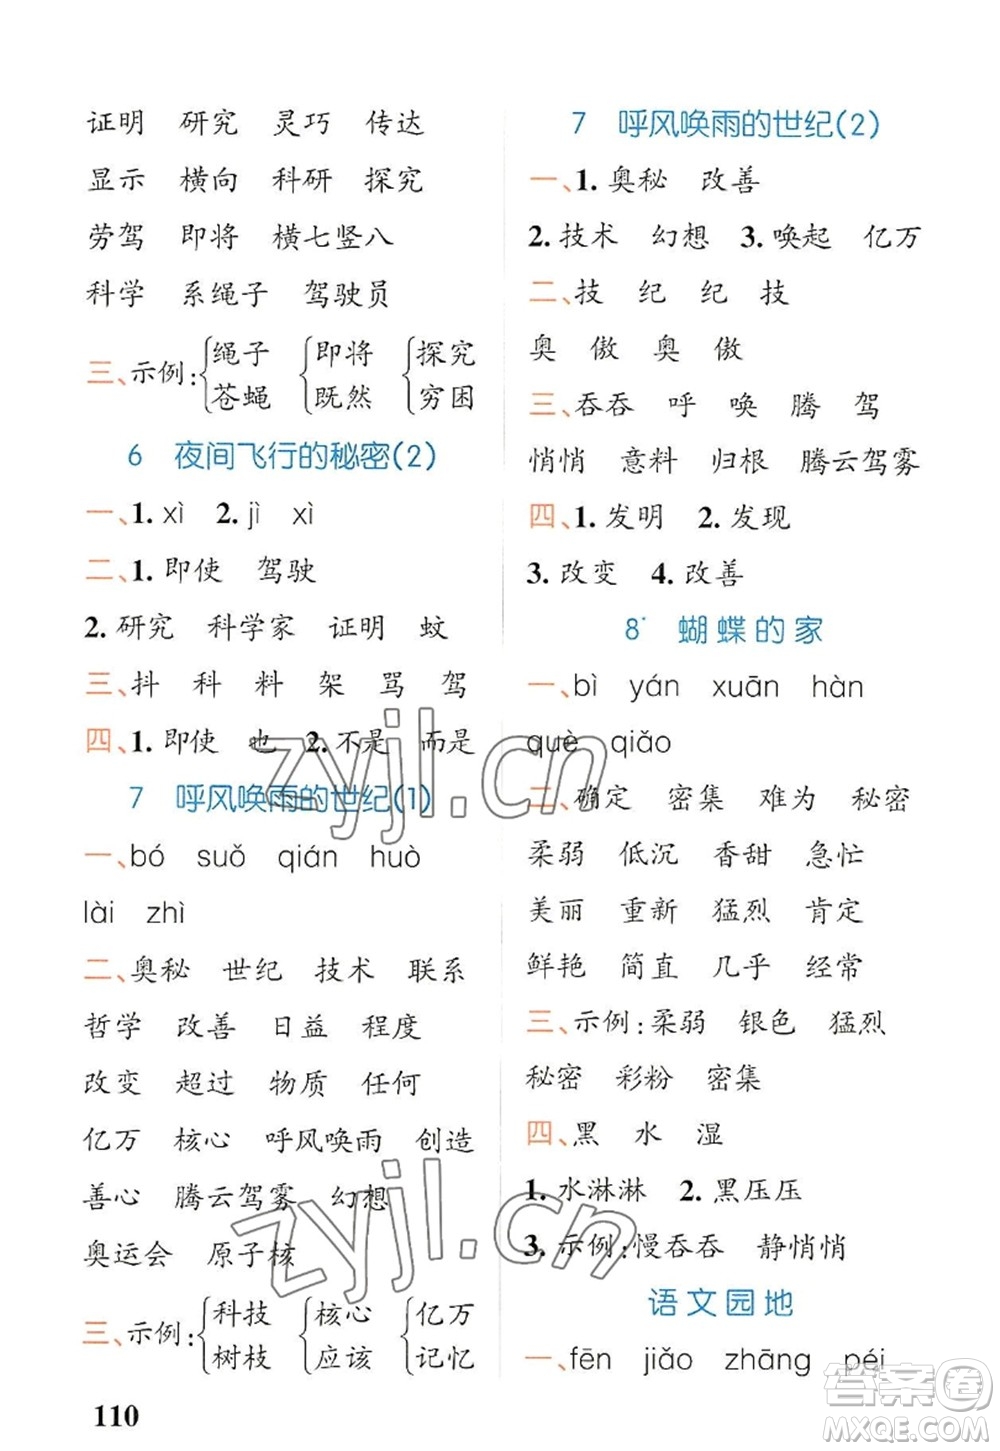 证明 研究 灵巧 传达
显示 横向 科研 探究
劳驾 即将 横七竖八
科学 系绳子 驾驶员
三、示例:{绳子 {即将 {探究
苍蝇 既然 穷困
6 夜间飞行的秘密(2)
一、1. xì 2. jì xì
二、1. 即使 驾驶
2. 研究 科学家 证明 蚊
三、抖 科 料 架 骂 驾
四、1. 即使 也 2. 不是 而是
7 呼风唤雨的世纪(1)
一、bó suǒ qián huò
lài zhì
二、奥秘 世纪 技术 联系
哲学 改善 日益 程度
改变 超过 物质 任何
亿万 核心 呼风唤雨 创造
善心 腾云驾雾 幻想
奥运会 原子核
三、示例:{科技 {核心 {亿万
树枝 应该 记忆
110
7 呼风唤雨的世纪(2)
一、1. 奥秘 改善
2. 技术 幻想 3. 唤起 亿万
二、技 纪 纪 技
奥 傲 奥 傲
三、吞吞 呼 唤 腾 驾
悄悄 意料 归根 腾云驾雾
四、1. 发明 2. 发现
3. 改变 4. 改善
8* 蝴蝶的家
一、bì yán xuān hàn
què qiǎo
二、确定 密集 难为 秘密
柔弱 低沉 香甜 急忙
美丽 重新 猛烈 肯定
鲜艳 简直 几乎 经常
三、示例:柔弱 银色 猛烈
秘密 彩粉 密集
四、黑 水 湿
1. 水淋淋 2. 黑压压
3. 示例:慢吞吞 静悄悄
语文园地
一、fēn jiǎo zhāng péi
zyjl.cn
zyjl.cn
答案圈
MXQE.COM